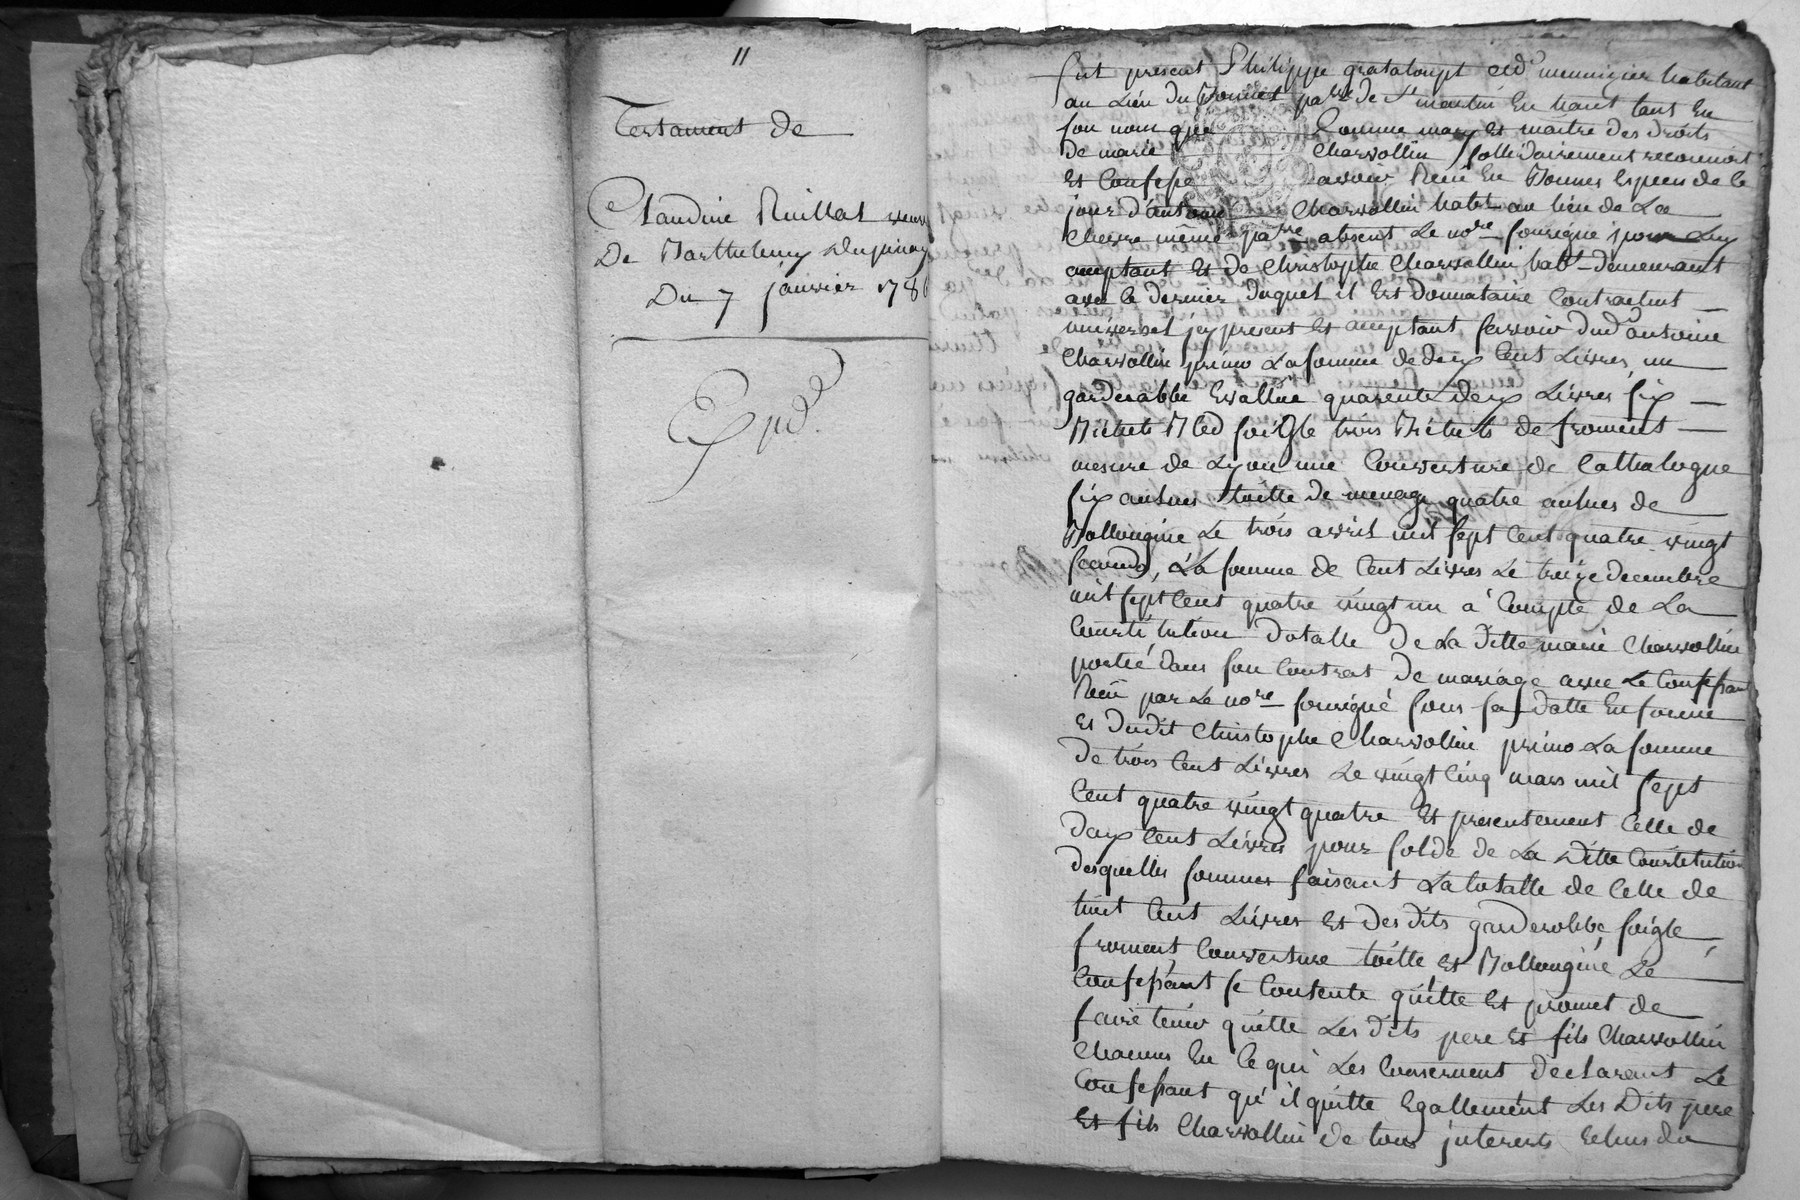 11
Testament de
Claudine Ruillat veuve
De Barthelemy Dupinay
Du 7 janvier 178
Expd.
fut present Philippe grataloupt md meunizier habitant
au Lieu du Bonnet par.re de St martin En haut tant En
son nom que Comme mary Et maitre des droits
de marie Charvollin sollidairement reconnoit
Et Confesse davoir Receu En Bonnes Especes de ce
jour d'antoine Charvollin habt au lieu de La
Chevre même par.re absent Le no.re sousigné pour Luy
aceptant Et de Christophe Charvollin habt demeurant
avec le dernier duquel il Est Donnataire Contractuel
universel jcy present Et aceptant savoir dud antoine
Charvollin primo La somme de deux Cent Livres, un
garderobbe Evallué quarente deux Livres six
Bichets Bled soigle trois Bichets de froment
mesure de Lyon une Couverture de Cathalogne
six aulnes toille de menage quatre aulnes de
Bollongine Le trois avril mil sept Cent quatre vingt
secundo, La somme de Cent Livres Le treize decembre
mil sept Cent quatre vingt un a Compte de La
Constitution dotalle de La ditte marie Charvollin
portée dans son Contrat de mariage avec Le Confessant
Receu par Le no.re sousigné sous sa datte En forme
Et dudit Christophe Charvollin primo La somme
de trois Cent Livres Le vingt Cinq mars mil sept
Cent quatre vingt quatre Et presentement Celle de
deux Cent Livres pour solde de La ditte Constitution
desquelles sommes faisant La totalle de Celle de
huit Cent Livres Et des dits garderobbe soigle
froment Couverture toille Et Bollongine Le
Confessant se Contente quitte Et promet de
faire tenir quitte Les dits pere Et fils Charvollin
Chacuns En Ce qui Les Concernent declarant Le
Confessant qu'il quitte Egallement Les Dits pere
Et fils Charvollin de tous jnterests Echus du